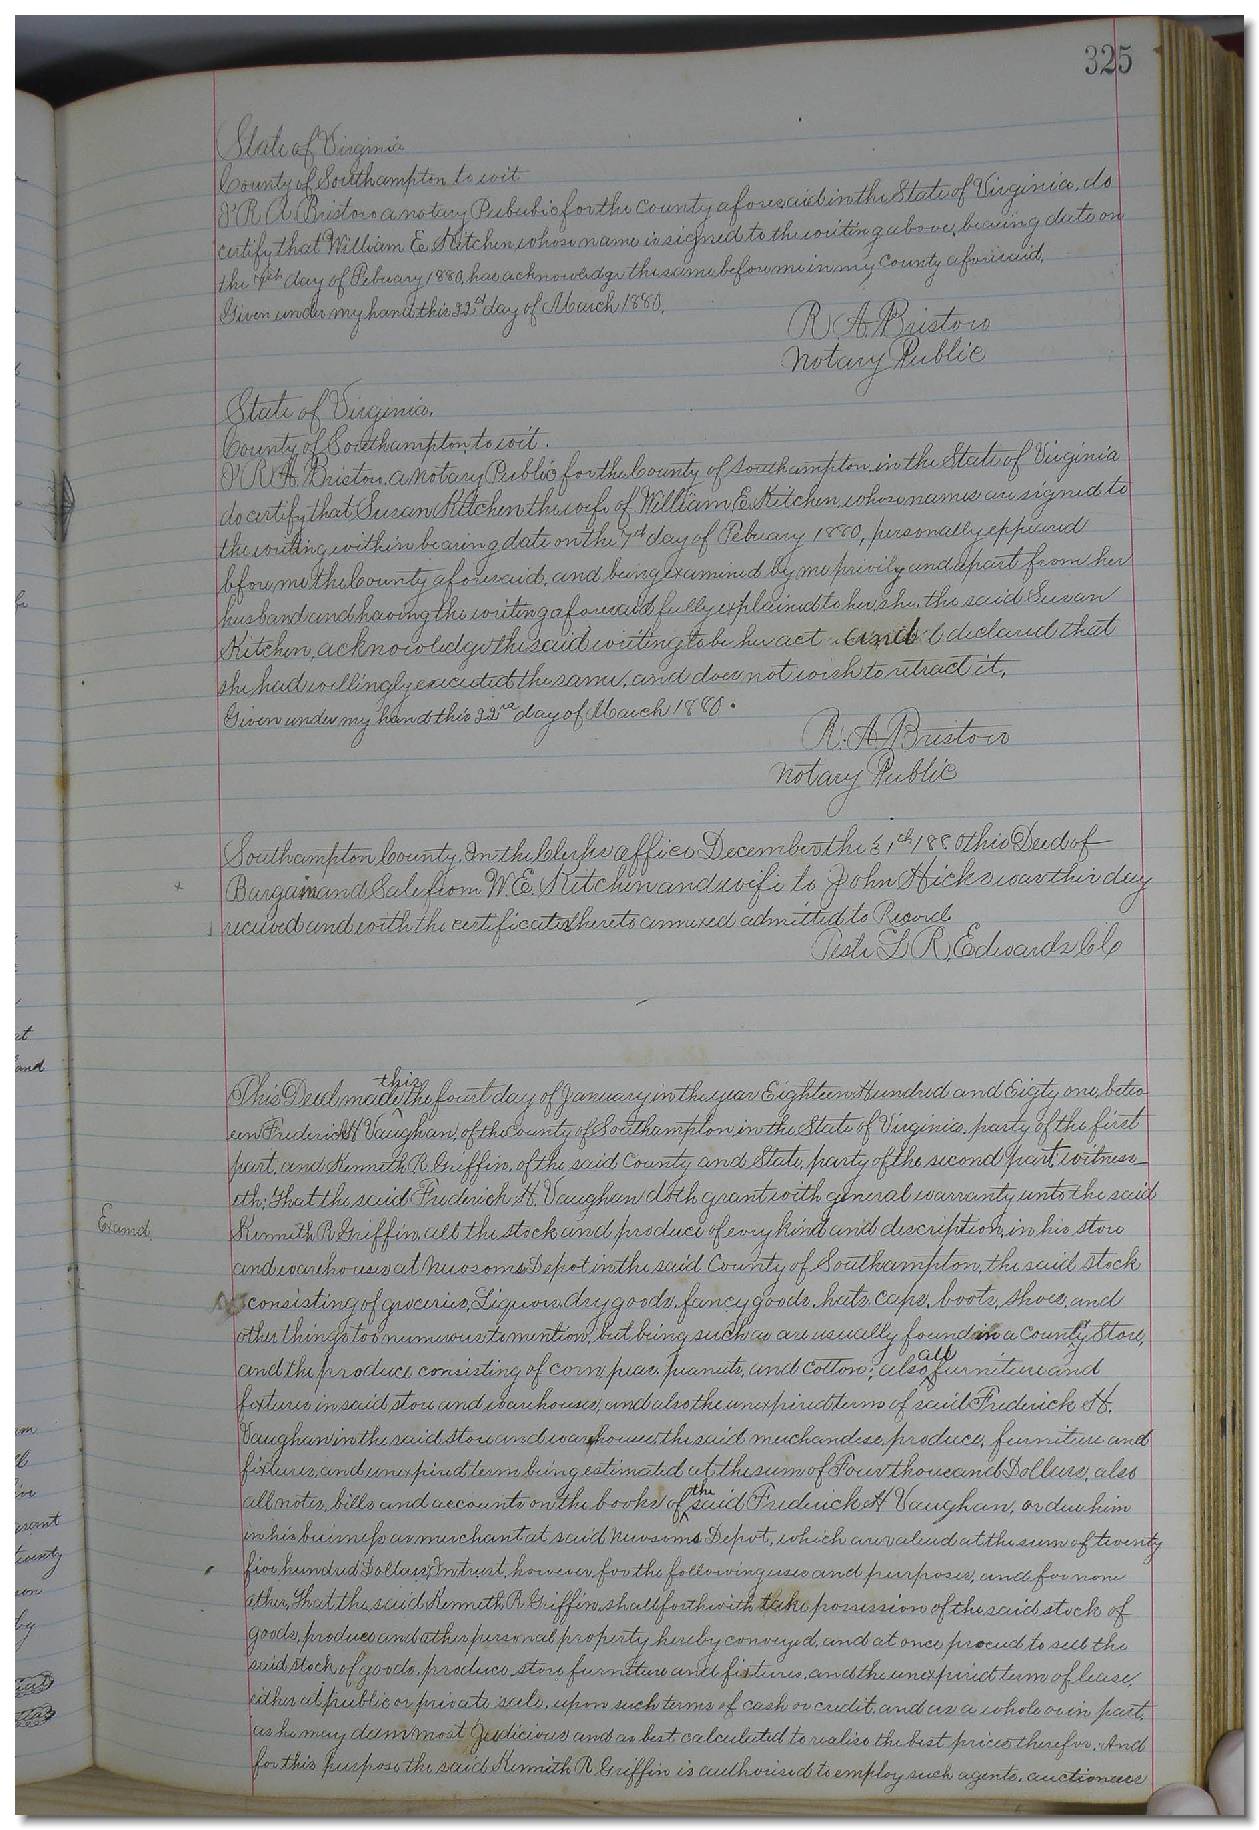 325
State of Virginia
County of Southampton to wit
I R. A. Bristow a notary Pububic for the County aforesaid in the State of Virginia, do
certify that William E. Kitchen whose name is signed to the writing above, bearing date on
the 7th day of Febuary 1880, has acknowledge the same before me in my County aforesaid.
Given under my hand this 22nd day of March 1880.
R. A. Bristow
Notary Public
State of Virginia.
County of Southampton, to wit.
I R. A. Bristow, a notary Public for the County of Southampton, in the State of Virginia
do certify that Susan Kitchen the wife of William E. Kitchen, whose names are signed to
the writing within bearing date on the 7th day of Febuary 1880, personally eppeared
bfore me the County aforesaid, and being examined by me privily and apart from her
husband and having the writing aforesaid fully explained to her, she, the said Susan
Kitchen, acknowledge the said writing to be her act and declared that
she had willingly executed the same, and does not wish to retract it.
Given under my hand this 22nd day of March 1880.
R. A. Bristow
Notary Public
Southampton County. In the Clerks office December the 31th 1880 this Deed of
Bargain and Sale from W. E. Kitchen and wife to John Hicks was this day
received and with the certificates thereto annexed admitted to Record
Teste L. R. Edwards Clk
This Deed made this the fourt day of January in the year Eighteen Hundred and Eigty one, betw
een Frederick H Vaughan, of the county of Southampton, in the State of Virginia, party of the first
part, and Kenneth R. Griffin, of the said County and State, party of the second part, witness
eth: That the said Frederick H. Vaughan doth grant with general warranty unto the said
Examd.
Kenneth R Griffin, all the stock and produce of every kind and description, in his store
and warehouses at Newsoms Depot in the said County of Southampton, the said stock
consisting of groceries, Liquors, dry goods, fancy goods, hats, caps, boots, shoes, and
other things too numerous to mention, but being such as are usually found in a County Store,
and the produce consisting of corn, peas, peanuts, and cotton; also all furniture and
fixtures in said store and warehouses, and also the unexpired terms of said Frederick H.
Vaughan in the said store and warehouses, the said merchandese, produce, furniture and
fixtures, and unexpired term being estimated at the sum of Four thousand Dollars, also
all notes, bills and accounts on the books of the said Frederick H Vaughan, or due him
in his buisness as merchant at said Newsoms Depot, which are valued at the sum of twenty
five hundred Dollars; In trust, however, for the following uses and purposes, and for none
other, That the said Kenneth R. Griffin, shall forthwith take possession of the said stock of
goods, produce and other personal property hereby conveyed, and at once proceed to sell the
said stock of goods, produce, store furniture and fixtures, and the unexpired term of lease,
either at public or private sale, upon such terms of cash or credit, and as a whole or in part,
as he may deem most Judicious and as best calculated to realise the best prices therefor. And
for this purpose the said Kenneth R. Griffin is authorised to employ such agents, auctioneers